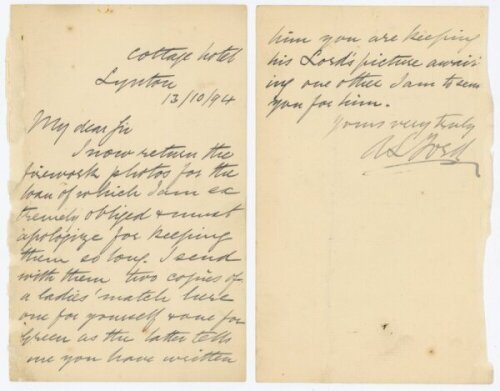 Cottage Hotel
Lynton
13/10/94
My dear Sir
I now return the
firework photos for the
loan of which I am ex
tremely obliged & must
apologize for keeping
them so long. I send
with them two copies of
a ladies' match here
one for yourself & one for
Green as the latter tells
me you have written
him you are keeping
his Lord's picture await
ing one other I am to send
you for him.
Yours very truly
A L Ford